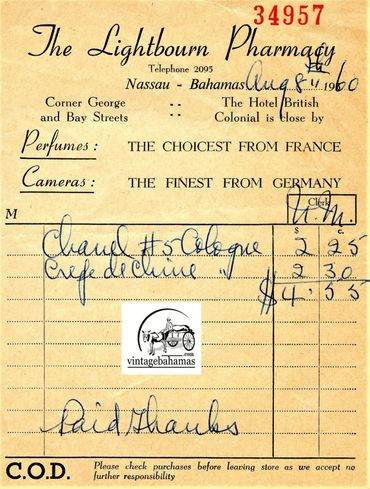 34957
The Lightbourn Pharmacy
Telephone 2095
Nassau - Bahamas Aug 8th 1960
Corner George and Bay Streets " " The Hotel British Colonial is close by
Perfumes: THE CHOICEST FROM FRANCE
Cameras: THE FINEST FROM GERMANY
Clerk
M $ c.
Chanel #5 Cologne 2 25
Crepe de Chine " 2 30
$4.55
.com
vintagebahamas
Paid Thanks
C.O.D. Please check purchases before leaving store as we accept no
further responsibility